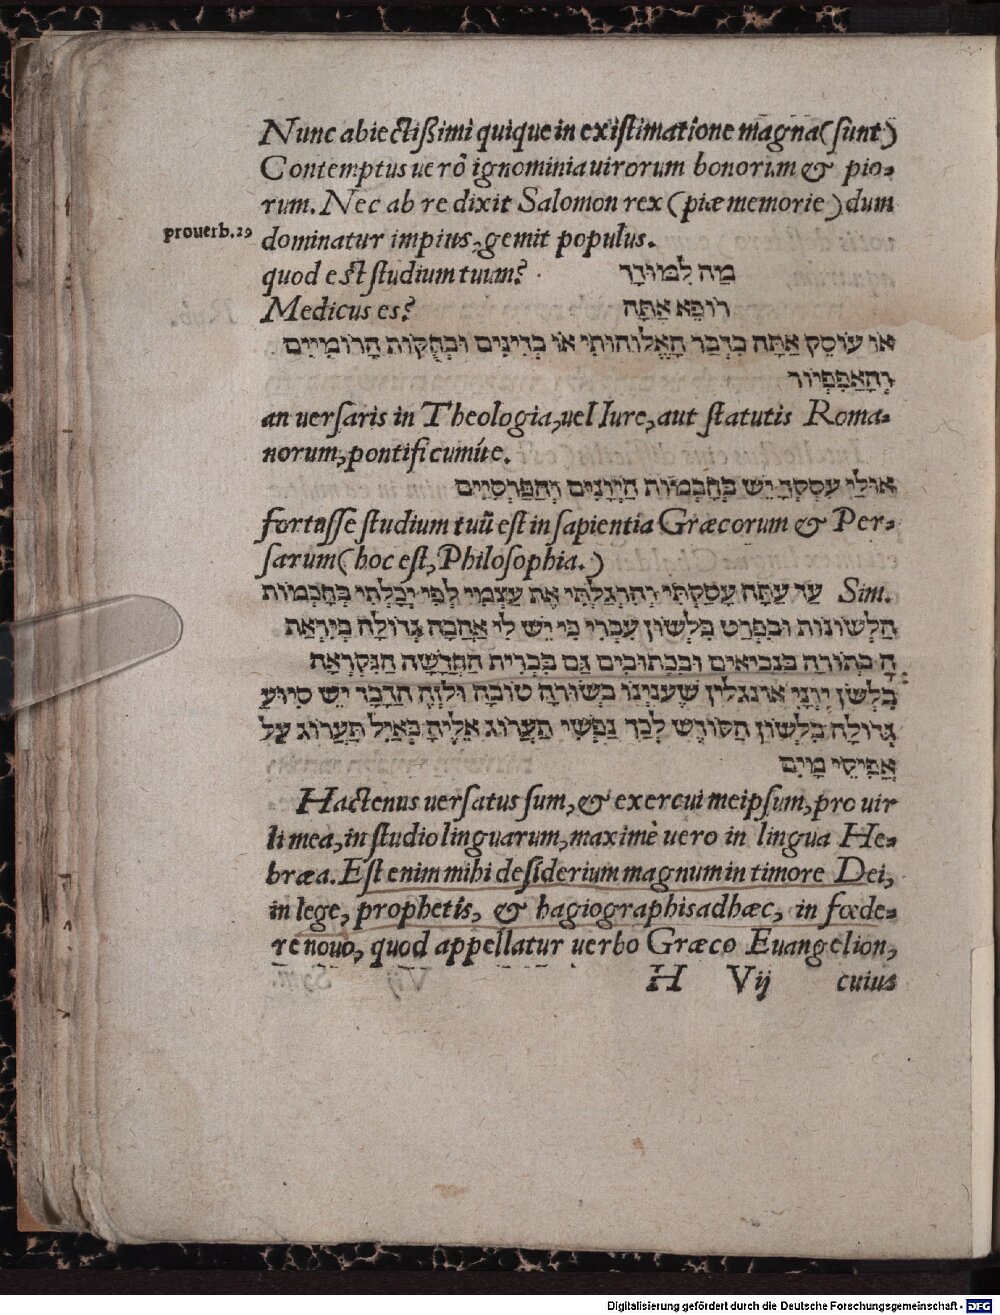 Nunc abiectißimi quique in existimatione magna (sunt)
Contemptus uerò ignominia uirorum bonorum & pio-
rum. Nec ab re dixit Salomon rex (piæ memorie) dum
prouerb.29 dominatur impius, gemit populus.
quod est studium tuum? מַה לִּמּוּדָךְ
Medicus es? רוֹפֵא אַתָּה
אוֹ עוֹסֵק אַתָּה בִּדְבַר הָאֱלוֹהוּתִי אוֹ בְּדִינִים וּבְחֻקּוֹת הָרוֹמִיִּים
וְהָאַפִּפְיוֹר
an uersaris in Theologia, uel Iure, aut statutis Roma-
norum, pontificumúe.
אוּלַי עִסְקְךָ יֵשׁ בְּחָכְמוֹת הַיְוָנִים וְהַפַּרְסִיִּים
fortasse studium tuũ est in sapientia Græcorum & Per-
sarum (hoc est, Philosophia.)
Sim. עַד עַתָּה עָסַקְתִּי וְהִרְגַּלְתִּי אֶת עַצְמִי לְפִי יְכָלְתִּי בְּחָכְמוֹת
הַלְּשׁוֹנוֹת וּבִפְרַט בִּלְשׁוֹן עִבְרִי כִּי יֵשׁ לִי אַהֲבָה גְּדוֹלָה בְּיִרְאַת
הָ בְּתוֹרָה בִּנְבִיאִים וּבִכְתוּבִים גַּם בִּבְרִית הַחֲדָשָׁה הַנִּקְרָאָה
בִּלְשֹׁן יְוָנִי אֵוַנְגֵּלִין שֶׁעִנְיָנוֹ בְּשׂוֹרָה טוֹבָה וְלָזֶה הַדָּבָר יֵשׁ סִיּוּעַ
גְּדוֹלָה בִּלְשׁוֹן הַקּוֹדֶשׁ לְכֵן נַפְשִׁי תַּעֲרוֹג אֵלֶיהָ כְּאַיָּל תַּעֲרוֹג עַל
אֲפִיקֵי מָיִם
Hactenus uersatus sum, & exercui meipsum, pro uiri
li mea, in studio linguarum, maximè uero in lingua He-
bræa. Est enim mihi desiderium magnum in timore Dei,
in lege, prophetis, & hagiographis adhæc, in fœde-
re nouo, quod appellatur uerbo Græco Euangelion,
H Vij cuius